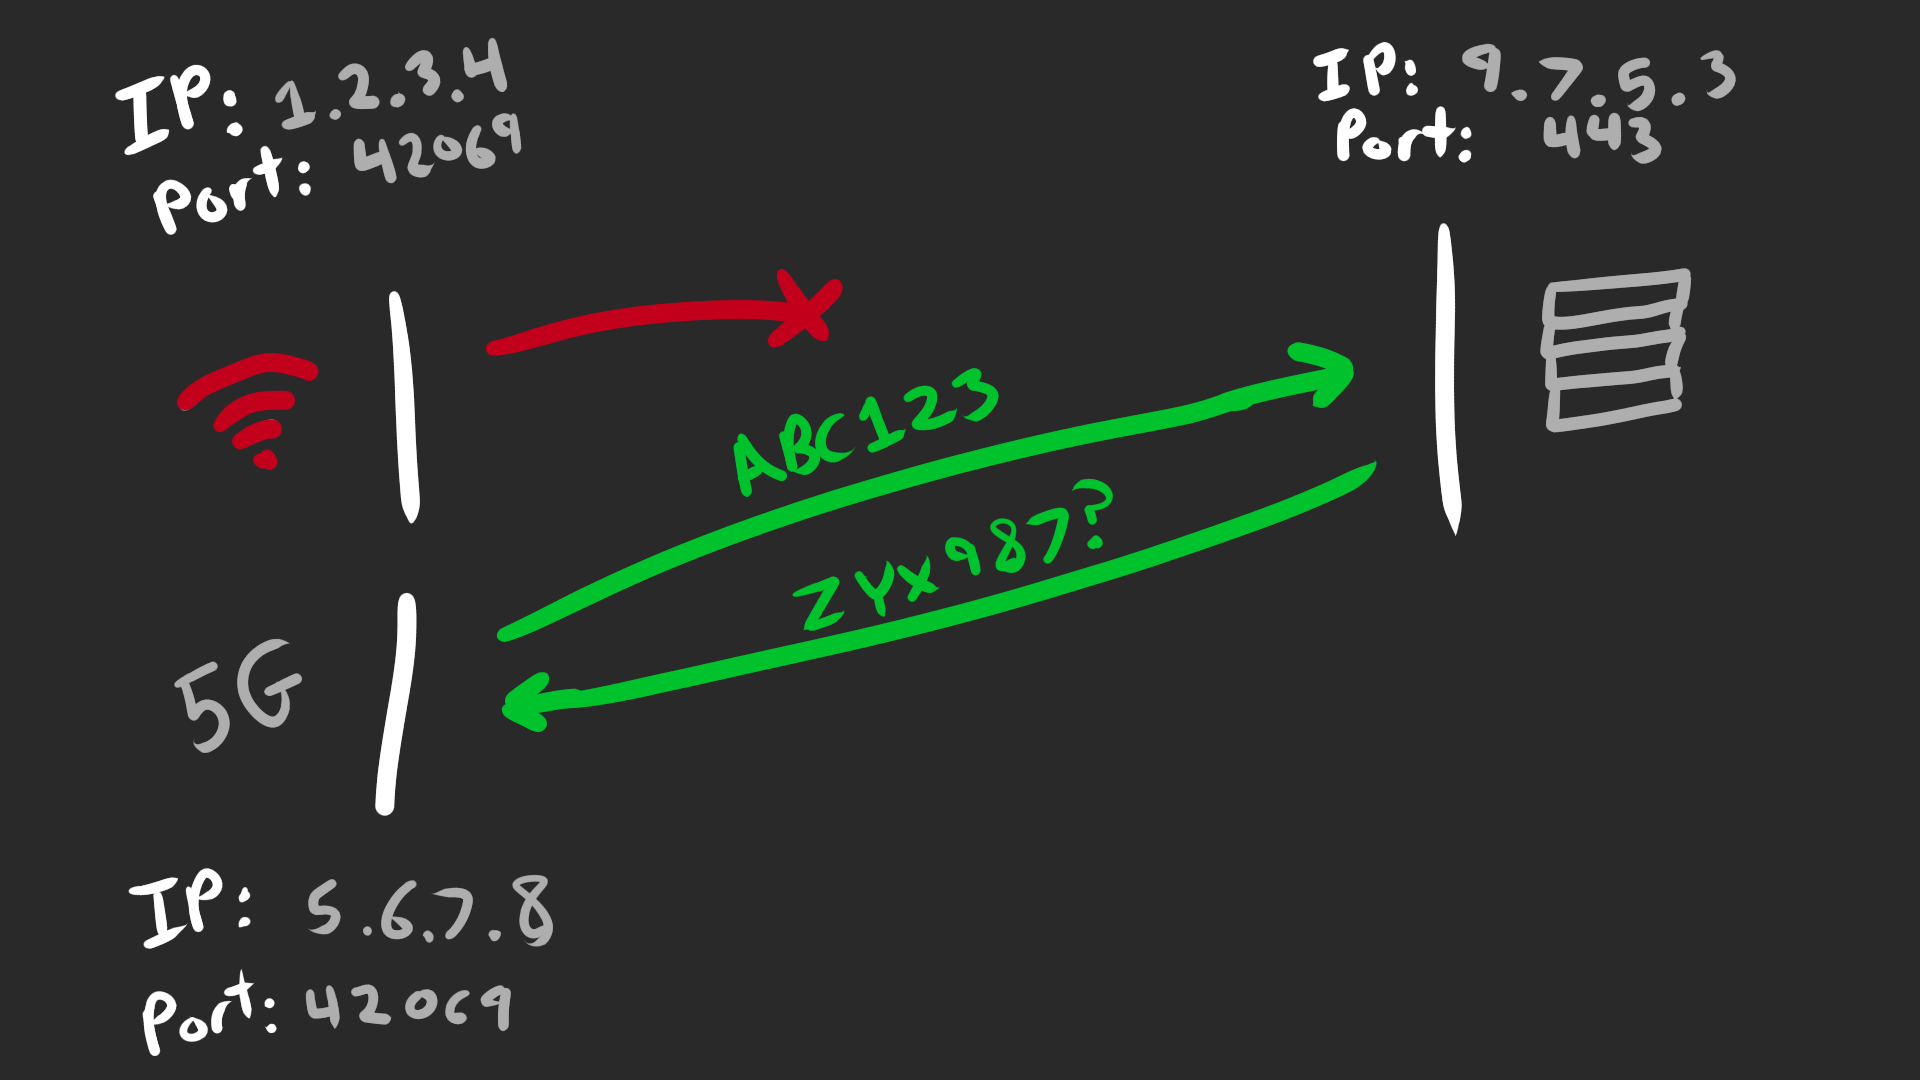 IP: 1.2.3.4
Port: 42069
IP: 9.7.5.3
Port: 443
ABC123
ZYX987?
5G
IP: 5.6.7.8
Port: 42069